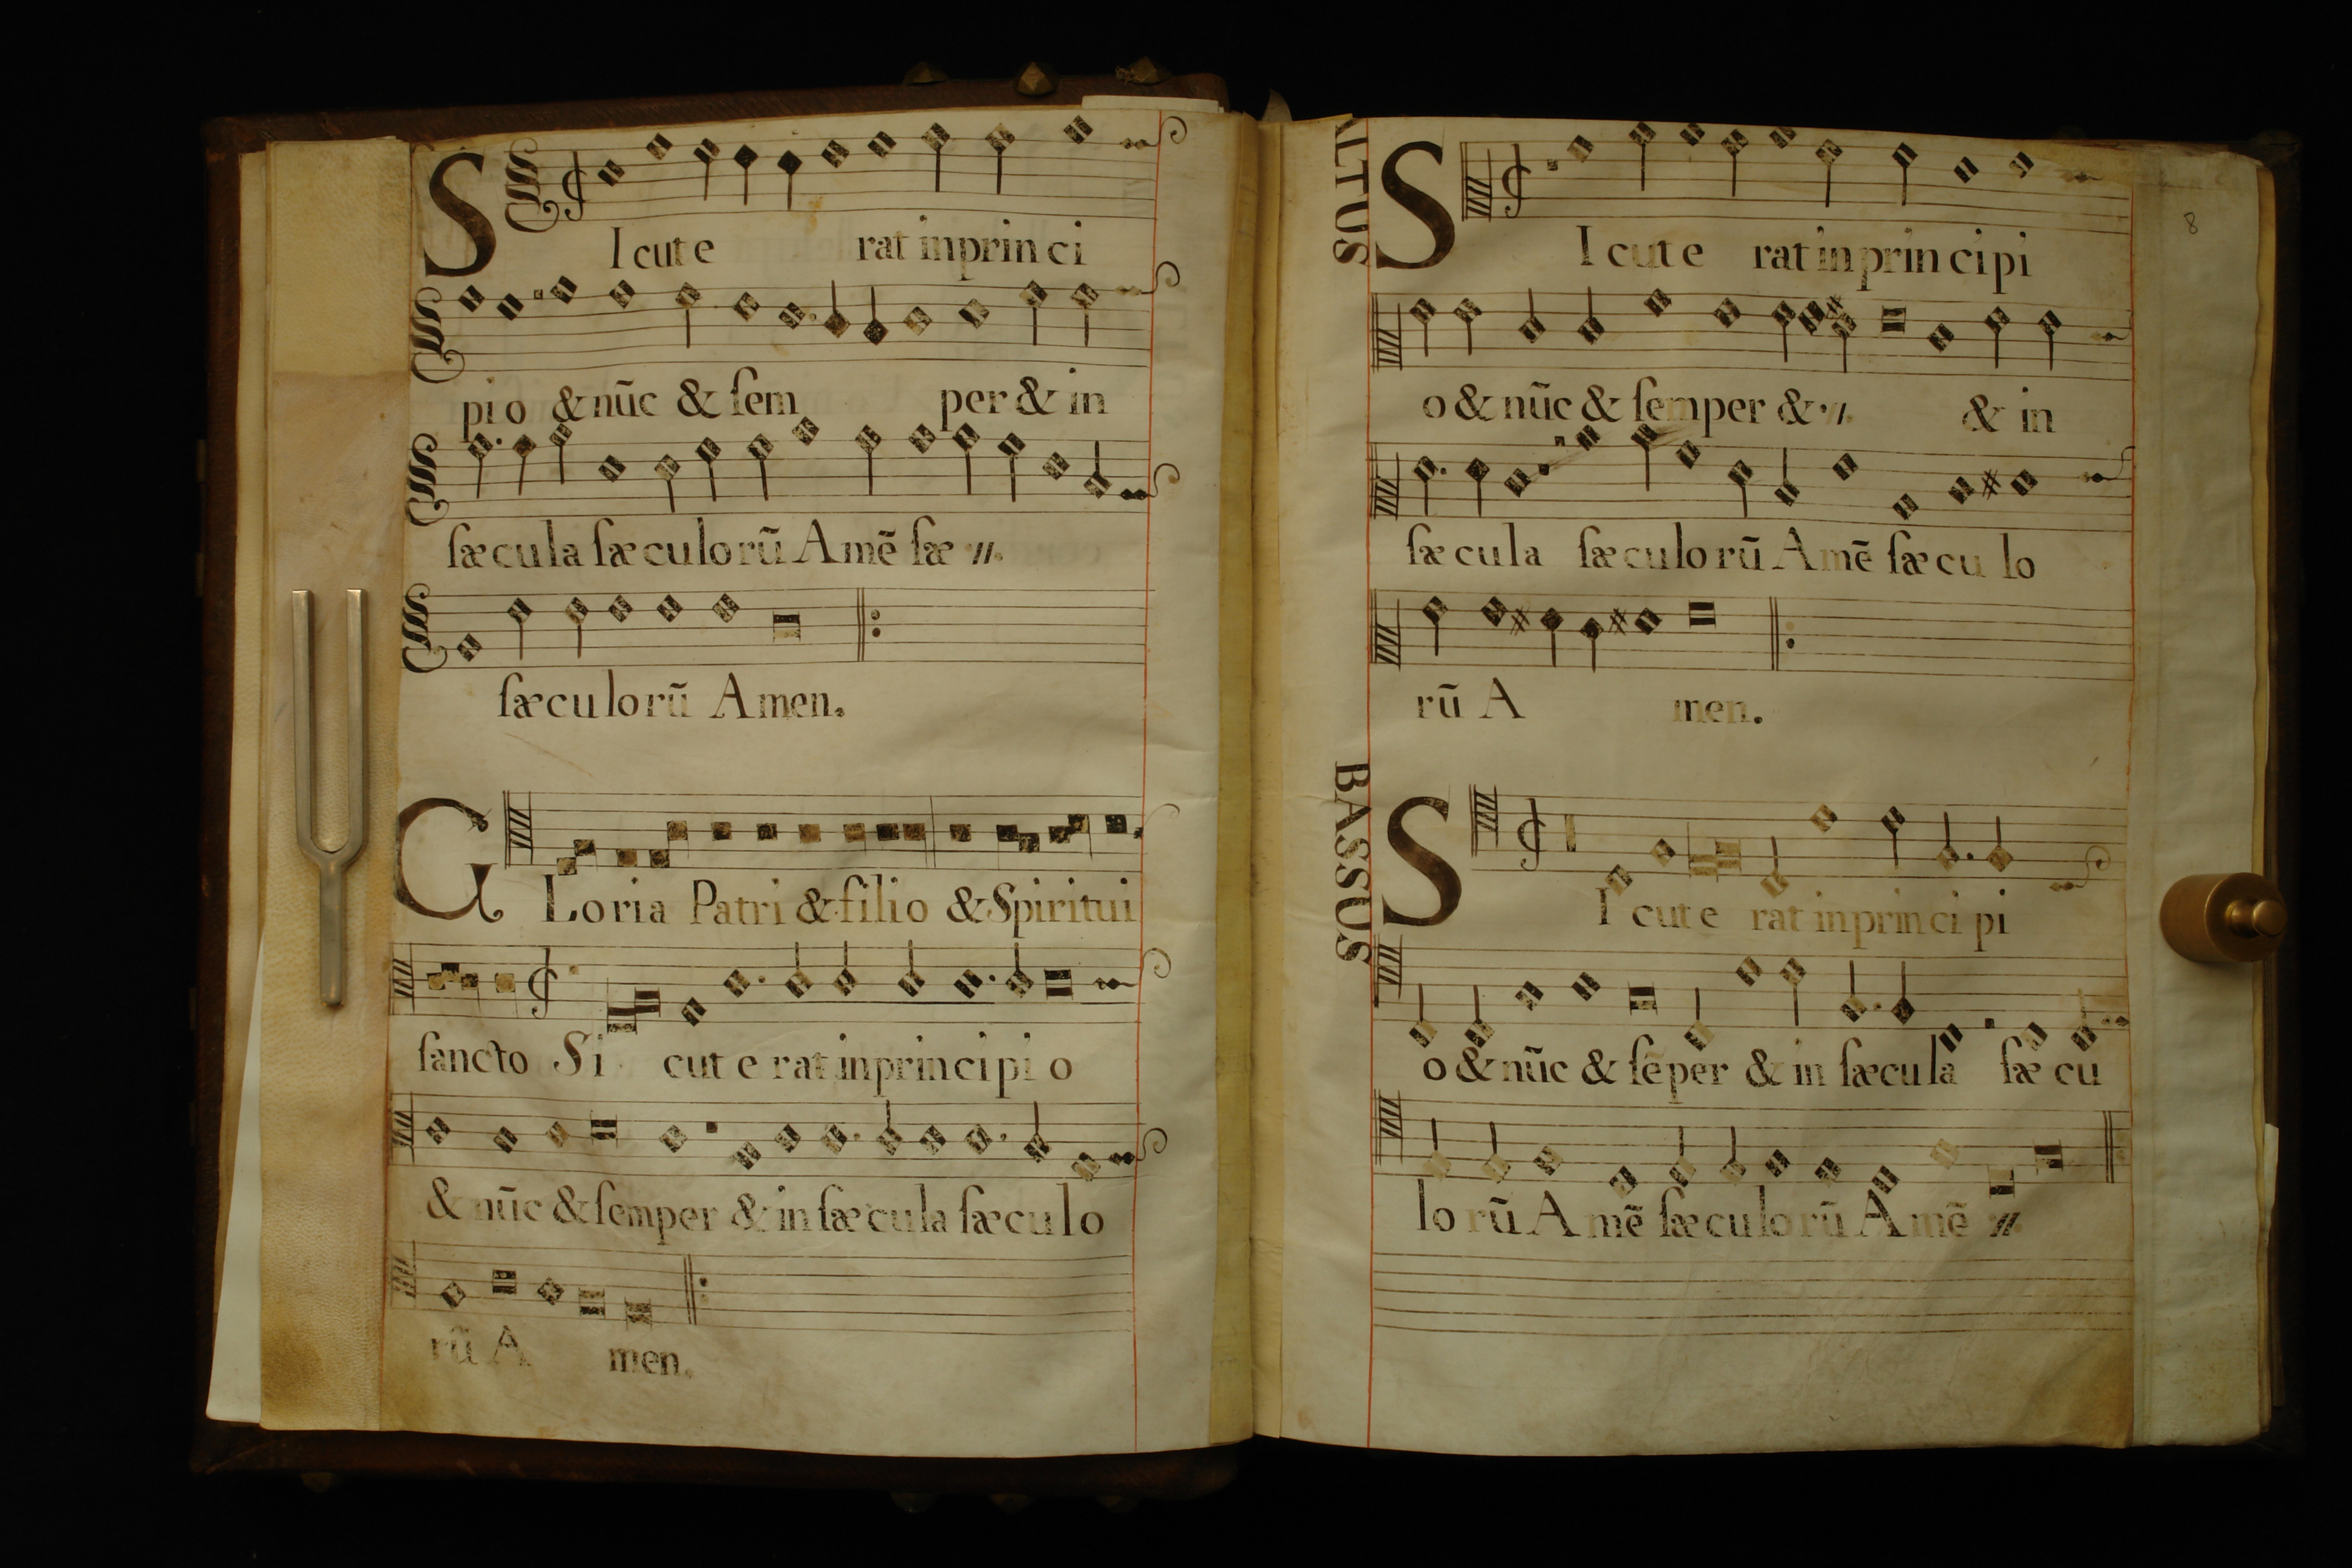 SIcut e rat in prin ci
pi o & nũc & ſem per & in
ſæcula ſæculorũ Amẽ ſæ ·//·
ſæculorũ Amen.
GLoria Patri & filio & Spiritui
ſancto Si cut e rat in principi o
& nũc & ſemper & in ſæcula ſæculo
rũ A men.
ALTUS
SIcut e rat in prin ci pi
o & nũc & ſemper & ·//· & in
ſæcula ſæculorũ Amẽ ſæcu lo
rũ A men.
BASSUS
SIcut e rat in prin ci pi
o & nũc & ſẽper & in ſæcula ſæ cu
lo rũ Amẽ ſæculorũ Amẽ ·//·
8